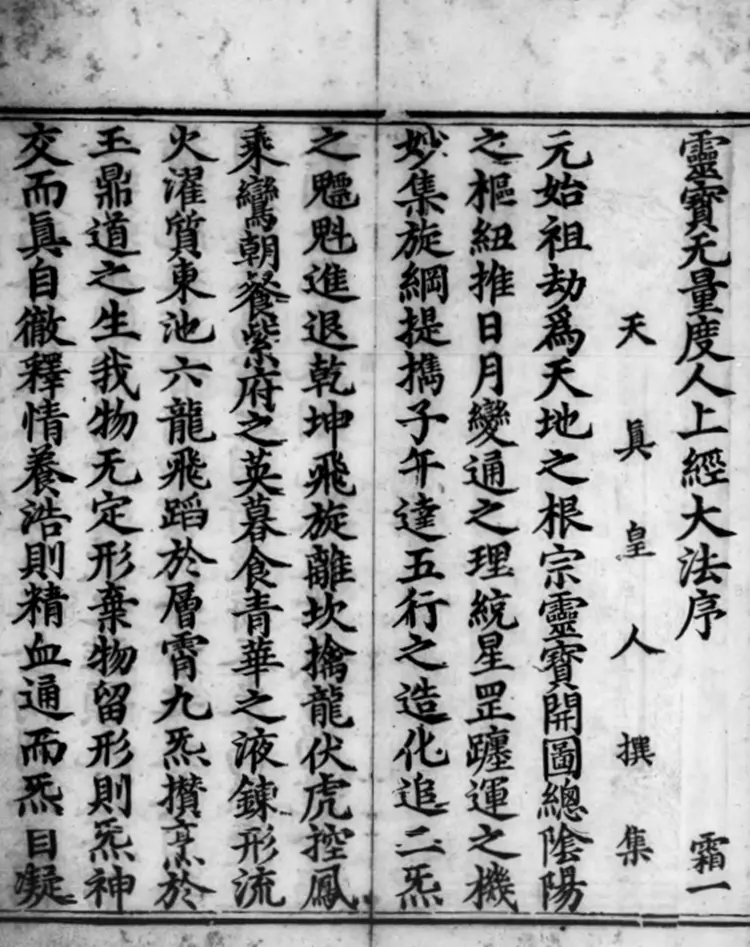 靈寶无量度人上經大法序 霜一
天真皇人撰集
元始祖劫爲天地之根宗靈寶開圖總陰陽
之樞紐推日月變通之理統星罡躔運之機
妙集旋綱提攜子午達五行之造化追二炁
之魒魁進退乾坤飛旋離坎擒龍伏虎控鳳
乘鸞朝餐紫府之英暮食青華之液鍊形流
火濯質東池六龍飛蹈於層霄九炁攢烹於
玉鼎道之生我物无定形棄物留形則炁神
交而眞自徹釋情養浩則精血通而炁目凝